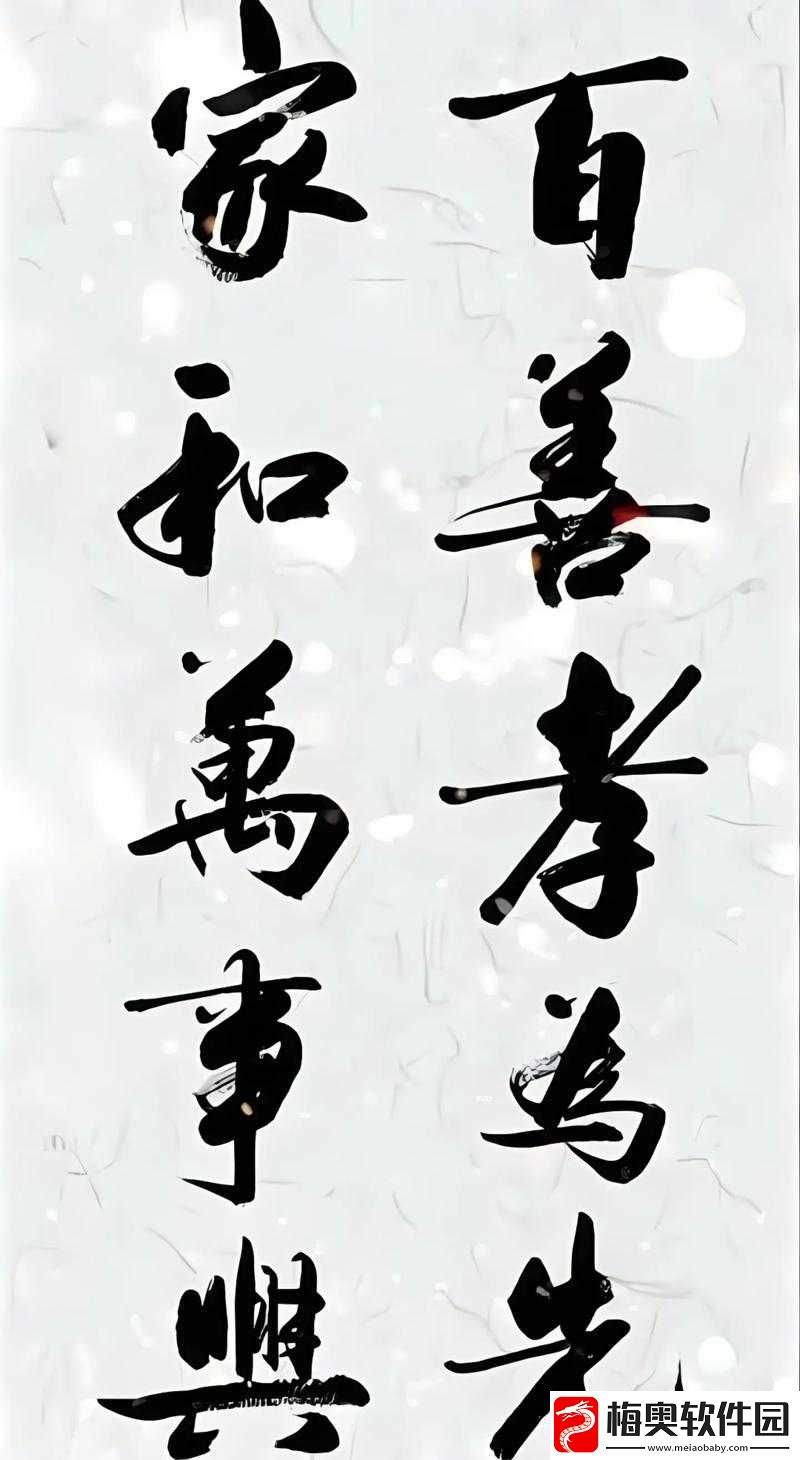 百善孝為先
家和萬事興
梅奥软件园
www.meiaobaby.com